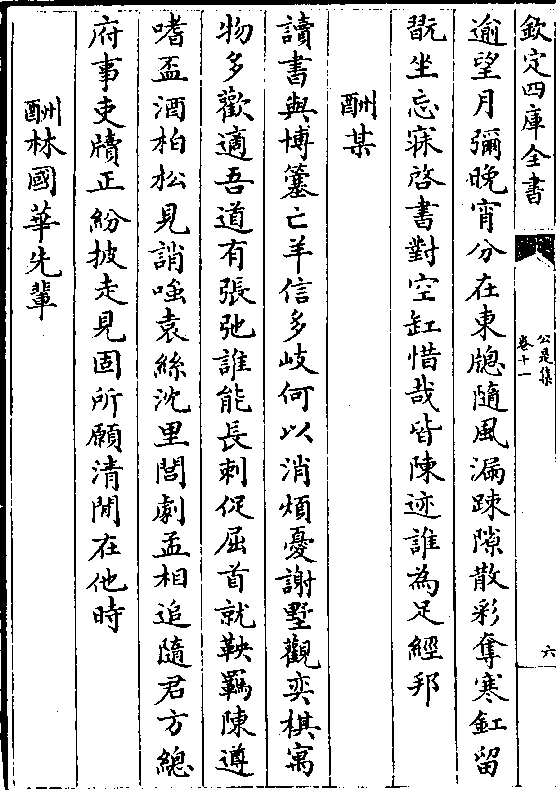 欽定四庫全書
公是集
卷十一
六
逾望月彌晚宵分在東牕隨風漏踈隙散彩奪寒釭留
翫坐忘寐啓書對空缸惜哉皆陳迹誰為足經邦
酬某
讀書與博簺亡羊信多岐何以消煩憂謝墅觀奕棋寓
物多歡適吾道有張弛誰能長刺促屈首就鞅羈陳遵
嗜盃酒柏松見誚嗤袁絲沈里閭劇孟相追隨君方總
府事吏牘正紛披走見固所願清閒在他時
酬林國華先輩